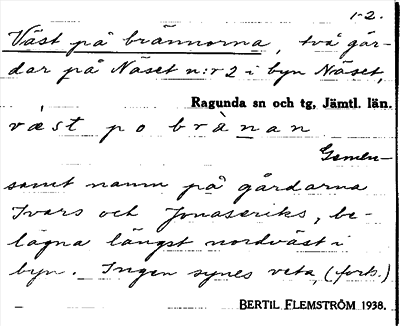 1-2.
Väst på brännorna, två går-
dar på Näset n:r 2 i byn Näset,
Ragunda sn och tg, Jämtl. län.
væst po brànan
Gemen-
samt namn på gårdarna
Ivars och Jonaseriks, be-
lägna längst nordväst i
byn. Ingen synes veta, (forts.)
BERTIL FLEMSTRÖM 1938.